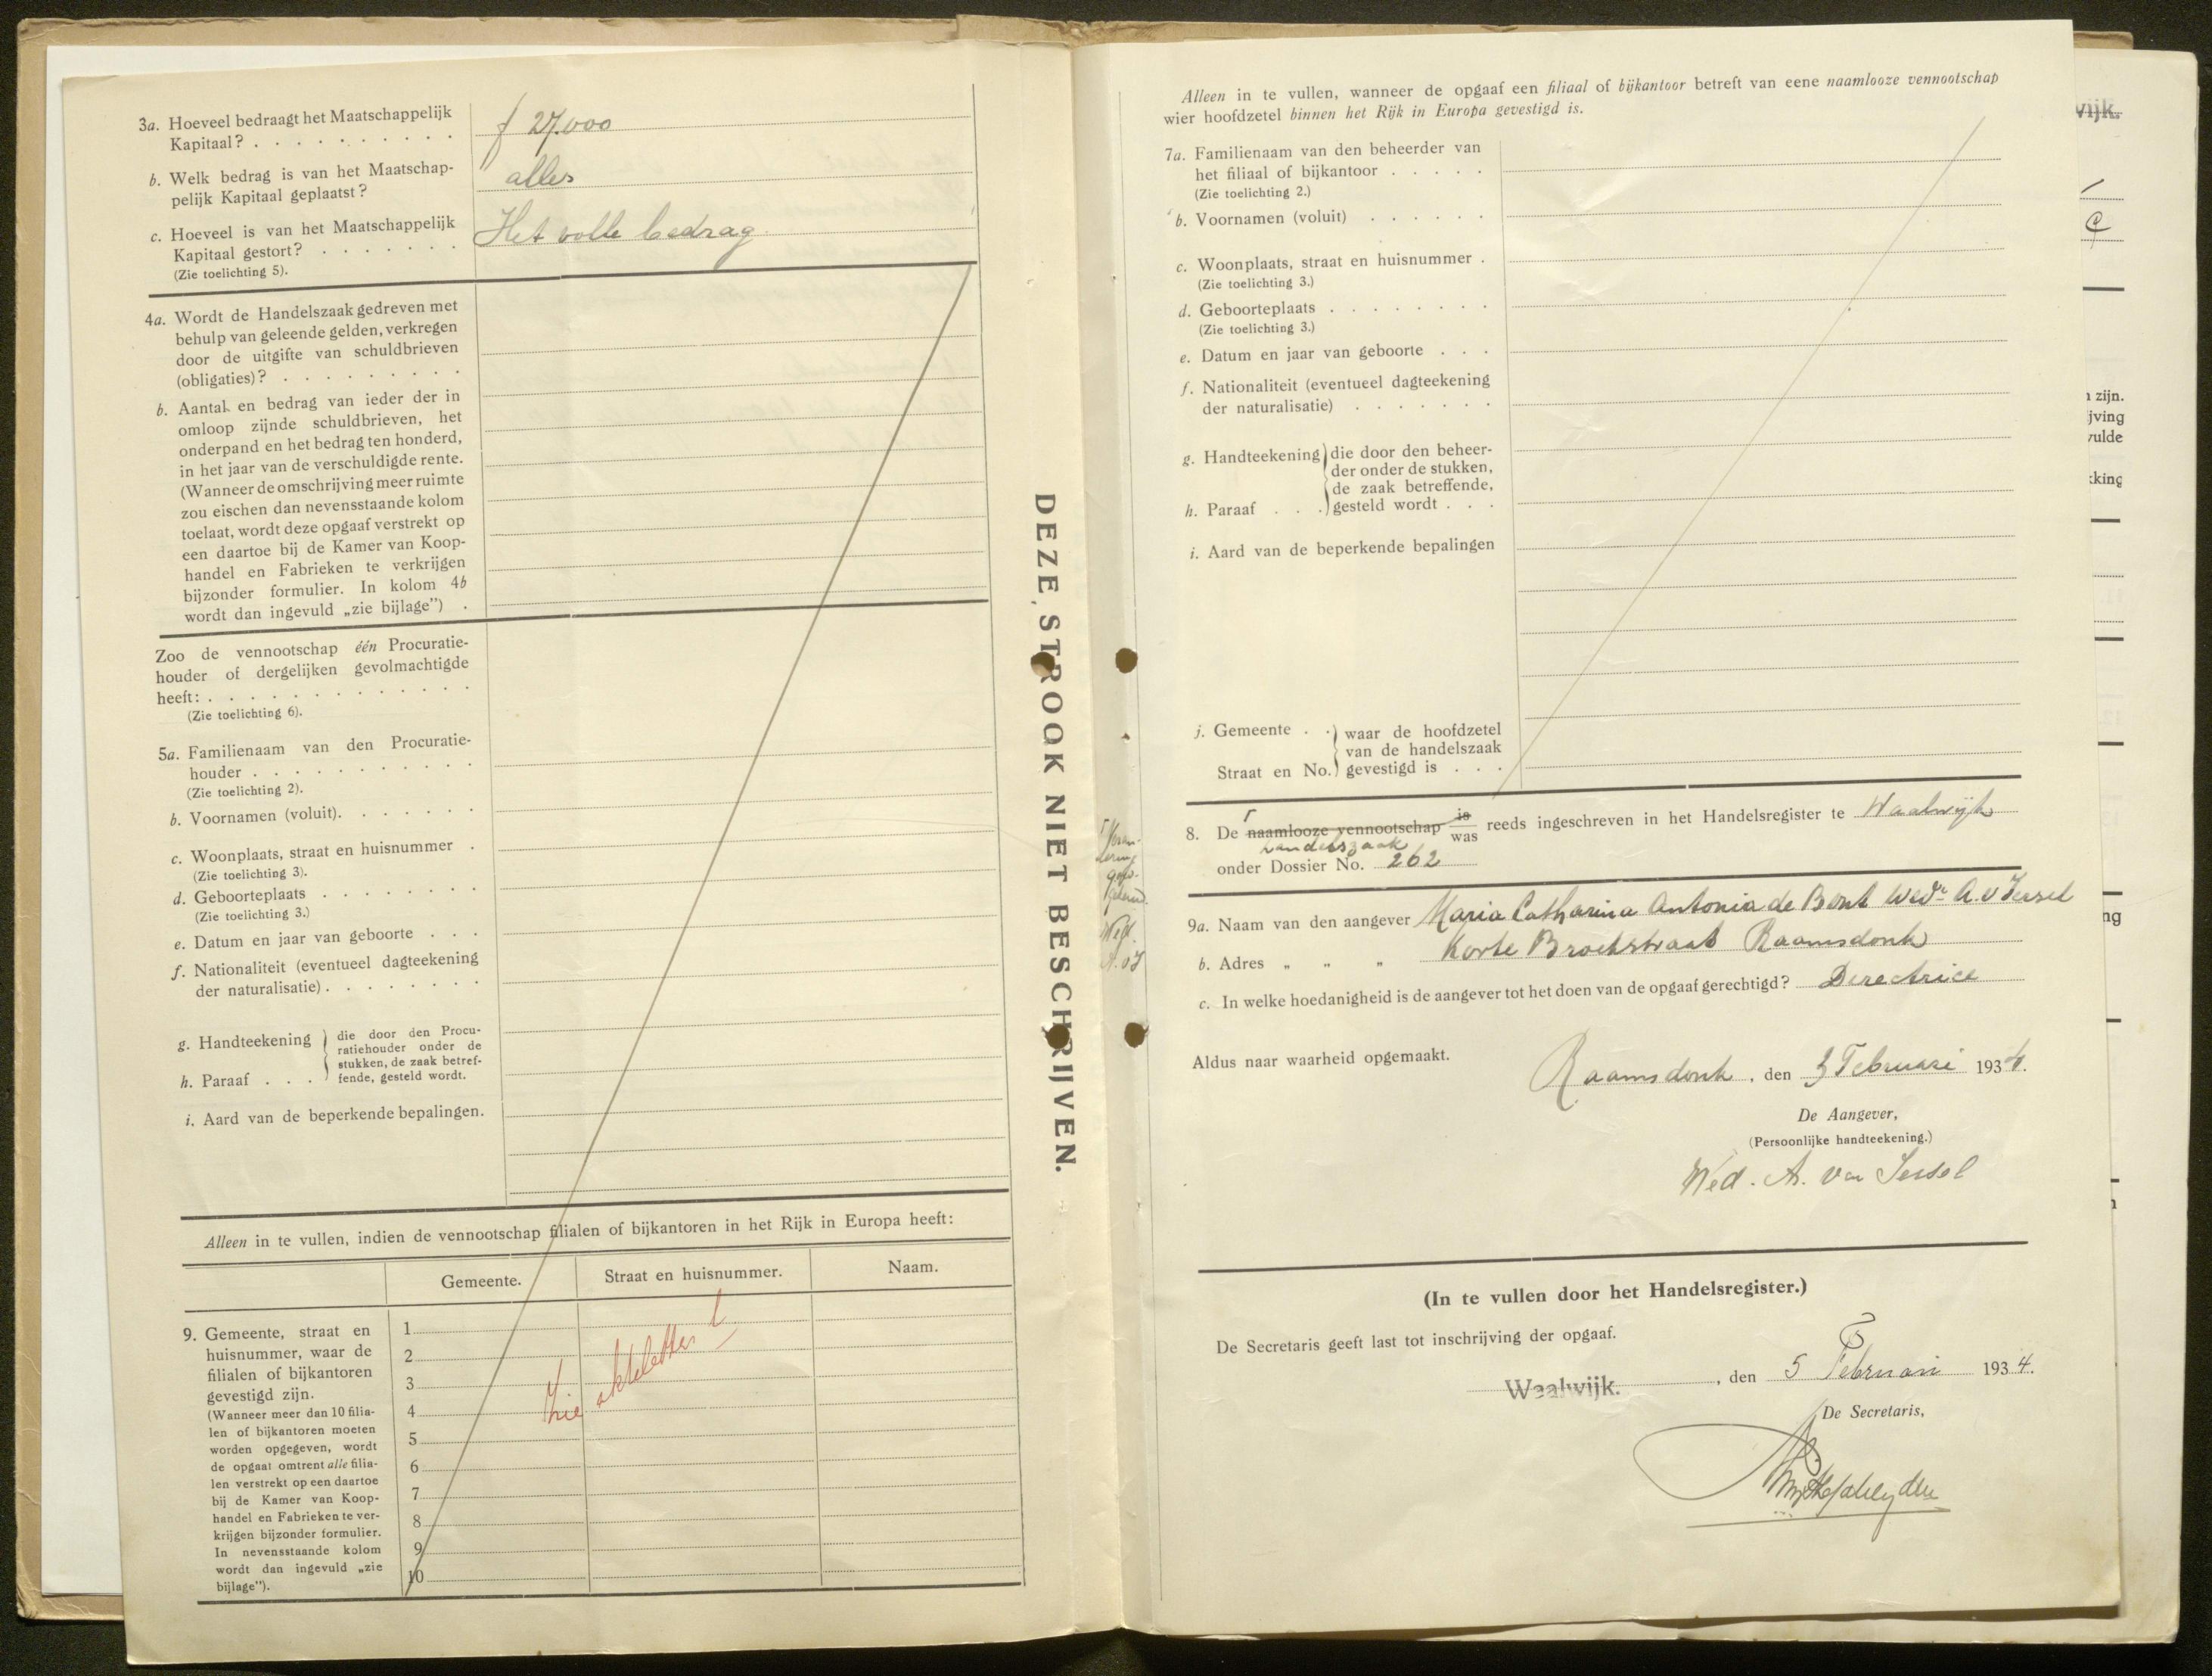 3a. Hoeveel bedraagt het Maatschappelijk
Kapitaal? . . . . . . . . . f 27.000
b. Welk bedrag is van het Maatschap-
pelijk Kapitaal geplaatst? alles
c. Hoeveel is van het Maatschappelijk
Kapitaal gestort? . . . . . . . Het volle bedrag
(Zie toelichting 5).
4a. Wordt de Handelszaak gedreven met
behulp van geleende gelden, verkregen
door de uitgifte van schuldbrieven
(obligaties)? . . . . . . . . .
b. Aantal en bedrag van ieder der in
omloop zijnde schuldbrieven, het
onderpand en het bedrag ten honderd,
in het jaar van de verschuldigde rente.
(Wanneer de omschrijving meer ruimte
zou eischen dan nevensstaande kolom
toelaat, wordt deze opgaaf verstrekt op
een daartoe bij de Kamer van Koop-
handel en Fabrieken te verkrijgen
bijzonder formulier. In kolom 4b
wordt dan ingevuld „zie bijlage”) .
Zoo de vennootschap één Procuratie-
houder of dergelijken gevolmachtigde
heeft: . . . . . . . . . . . . .
(Zie toelichting 6).
5a. Familienaam van den Procuratie-
houder . . . . . . . . . . .
(Zie toelichting 2).
b. Voornamen (voluit). . . . . . .
c. Woonplaats, straat en huisnummer .
(Zie toelichting 3).
d. Geboorteplaats . . . . . . . .
(Zie toelichting 3.)
e. Datum en jaar van geboorte . . .
f. Nationaliteit (eventueel dagteekening
der naturalisatie) . . . . . . . .
g. Handteekening die door den Procu-
ratiehouder onder de
stukken, de zaak betref-
h. Paraaf . . . fende, gesteld wordt.
i. Aard van de beperkende bepalingen.
Alleen in te vullen, indien de vennootschap filialen of bijkantoren in het Rijk in Europa heeft:
Gemeente. Straat en huisnummer. Naam.
9. Gemeente, straat en
huisnummer, waar de
filialen of bijkantoren
gevestigd zijn.
(Wanneer meer dan 10 filia-
len of bijkantoren moeten
worden opgegeven, wordt
de opgaaf omtrent alle filia-
len verstrekt op een daartoe
bij de Kamer van Koop-
handel en Fabrieken te ver-
krijgen bijzonder formulier.
In nevensstaande kolom
wordt dan ingevuld „zie
bijlage”).
1
2
3
4
5
6
7
8
9
10
Zie akteletter
DEZE STROOK NIET BESCHRIJVEN.
Alleen in te vullen, wanneer de opgaaf een filiaal of bijkantoor betreft van eene naamlooze vennootschap
wier hoofdzetel binnen het Rijk in Europa gevestigd is.
7a. Familienaam van den beheerder van
het filiaal of bijkantoor . . . . .
(Zie toelichting 2.)
b. Voornamen (voluit) . . . . . .
c. Woonplaats, straat en huisnummer .
(Zie toelichting 3.)
d. Geboorteplaats . . . . . . . .
(Zie toelichting 3.)
e. Datum en jaar van geboorte . . .
f. Nationaliteit (eventueel dagteekening
der naturalisatie) . . . . . . .
g. Handteekening die door den beheer-
der onder de stukken,
de zaak betreffende,
h. Paraaf . . . gesteld wordt . . .
i. Aard van de beperkende bepalingen
j. Gemeente . . waar de hoofdzetel
van de handelszaak
Straat en No. gevestigd is . . .
8. De naamlooze vennootschap is was reeds ingeschreven in het Handelsregister te Waalwijk
handelszaak
onder Dossier No. 262
9a. Naam van den aangever Maria Catharina Antonia de Bont Wedr A. v Iersel
b. Adres „ „ „ Korte Broekstraat Raamsdonk
c. In welke hoedanigheid is de aangever tot het doen van de opgaaf gerechtigd? Derectrice
Aldus naar waarheid opgemaakt.
Raamsdonk, den 3 Februari 1934.
De Aangever,
(Persoonlijke handteekening.)
Wed. A. van Iersel
(In te vullen door het Handelsregister.)
De Secretaris geeft last tot inschrijving der opgaaf.
Waalwijk. , den 5 Februari 1934.
De Secretaris,
vijk.
zijn.
jving
vulde
kking
ng